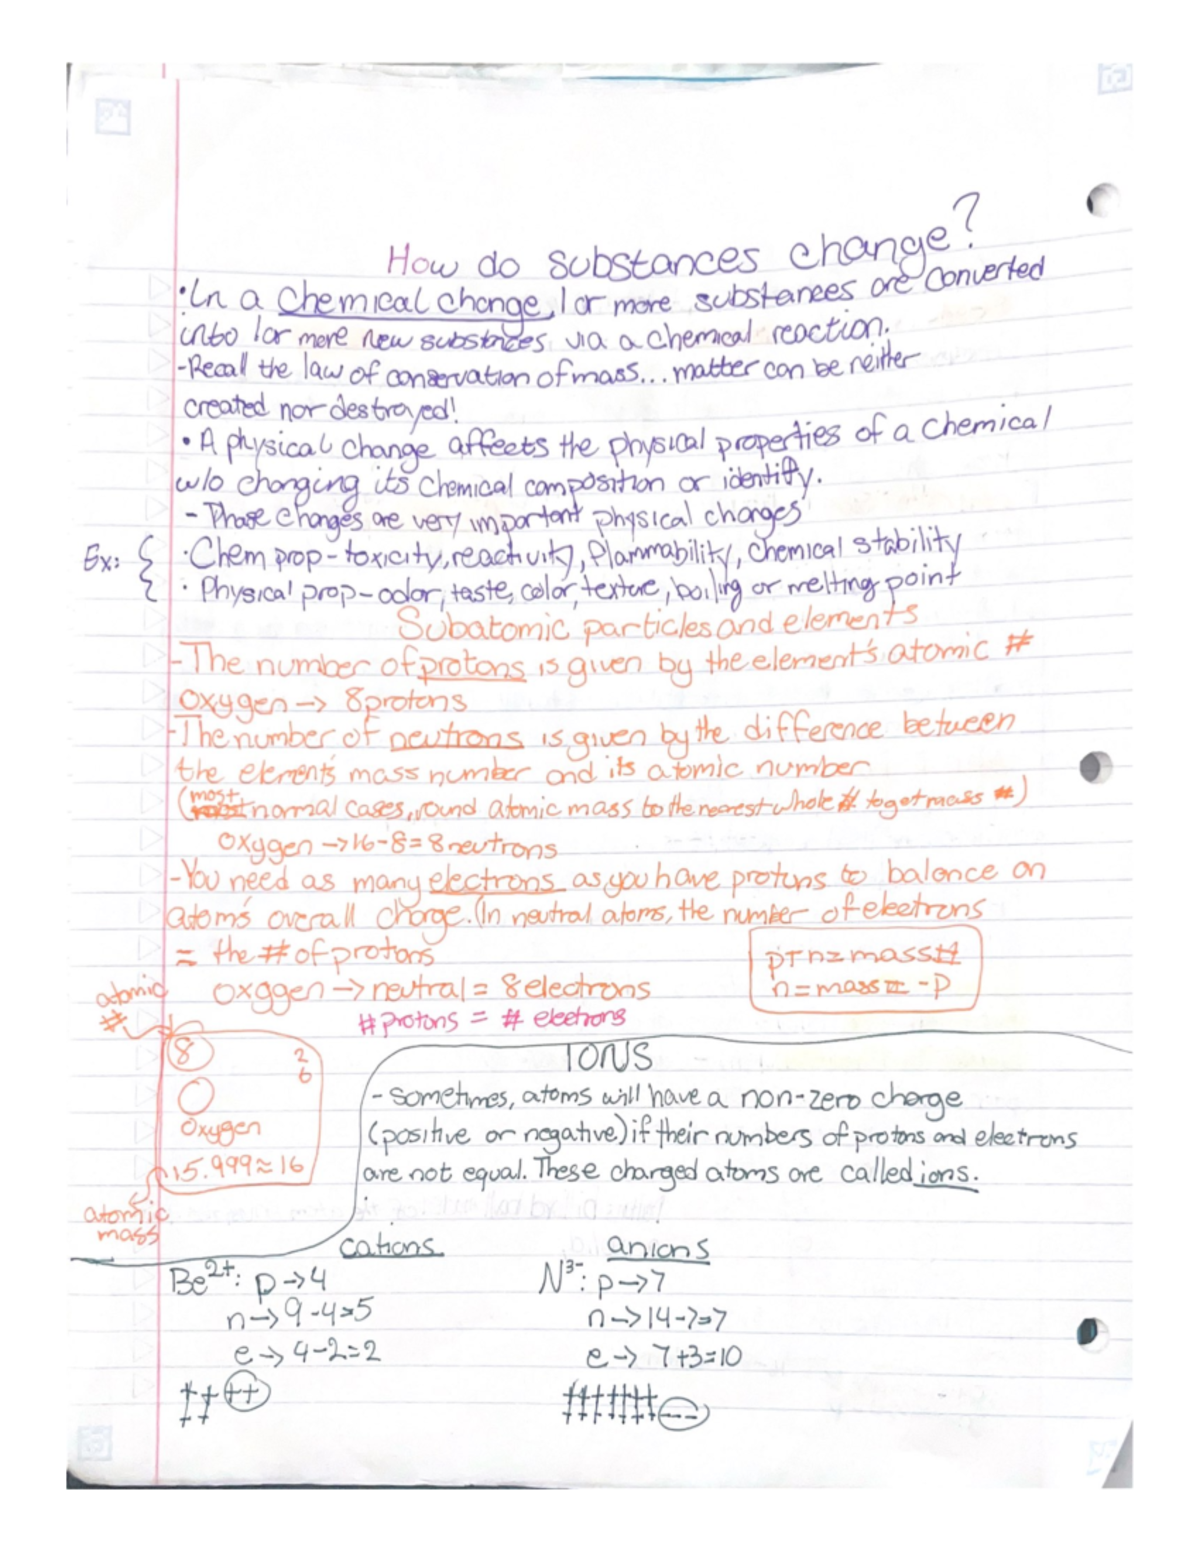 How do substances change?
•In a chemical change, 1 or more substances are converted
into 1 or more new substances via a chemical reaction.
-Recall the law of conservation of mass... matter can be neither
created nor destroyed!
• A physical change affects the physical properties of a chemical
w/o changing its chemical composition or identity.
- Phase changes are very important physical changes
Ex: { · Chem prop - toxicity, reactivity, flammability, chemical stability
· Physical prop - odor, taste, color, texture, boiling or melting point
Subatomic particles and elements
-The number of protons is given by the element's atomic #
oxygen -> 8 protons
-The number of neutrons is given by the difference between
the element's mass number and its atomic number
(most normal cases, round atomic mass to the nearest whole # to get mass #)
oxygen -> 16-8=8 neutrons
-You need as many electrons as you have protons to balance an
atom's overall charge. (In neutral atoms, the number of electrons
= the # of protons
p+n=mass#
n=mass# -p
oxygen -> neutral = 8 electrons
# protons = # electrons
atomic
#
8
2
6
Oxygen
15.999≈16
atomic
mass
IONS
- Sometimes, atoms will have a non-zero charge
(positive or negative) if their numbers of protons and electrons
are not equal. These charged atoms are called ions.
cations
anions
Be2+: p->4
n->9-4=5
e->4-2=2
++++
N3-: p->7
n->14-7=7
e->7+3=10
+++++++---